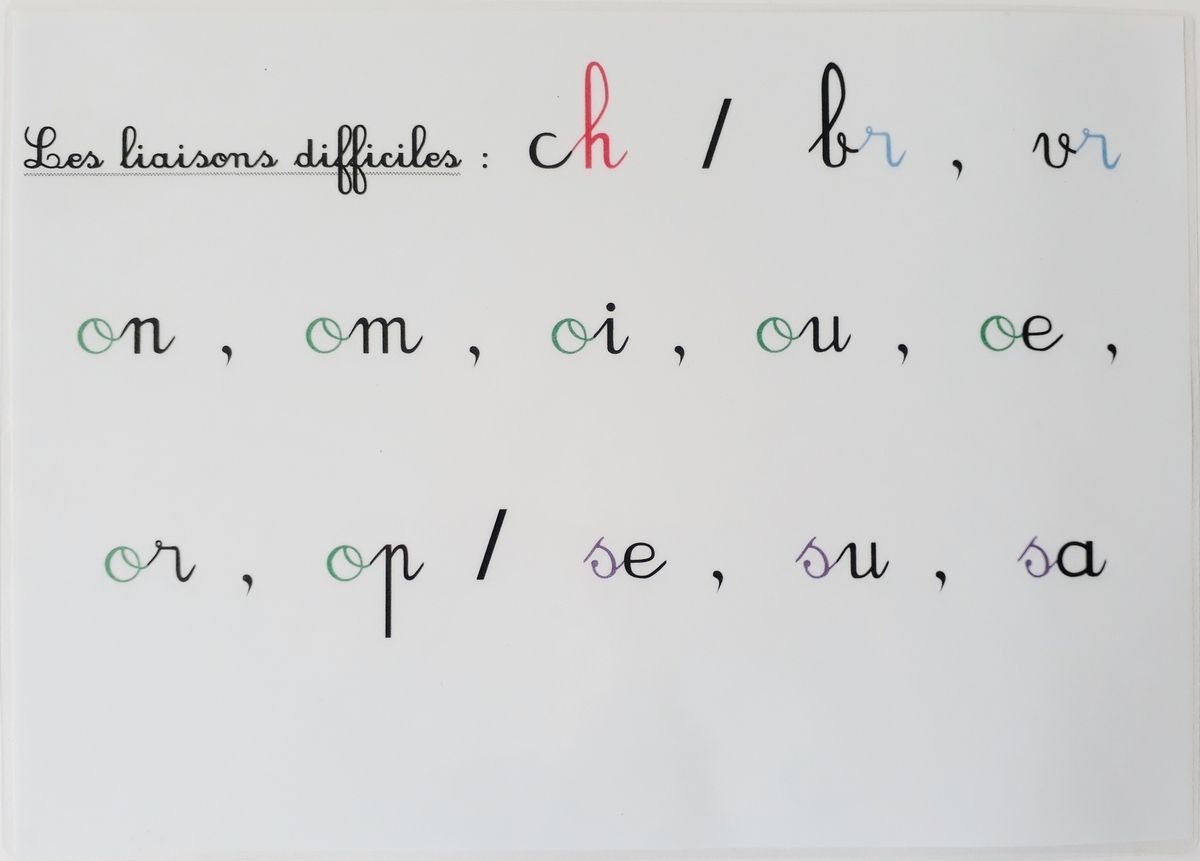 Les liaisons difficiles : ch / br , vr
on , om , oi , ou , oe ,
or , op / se , su , sa